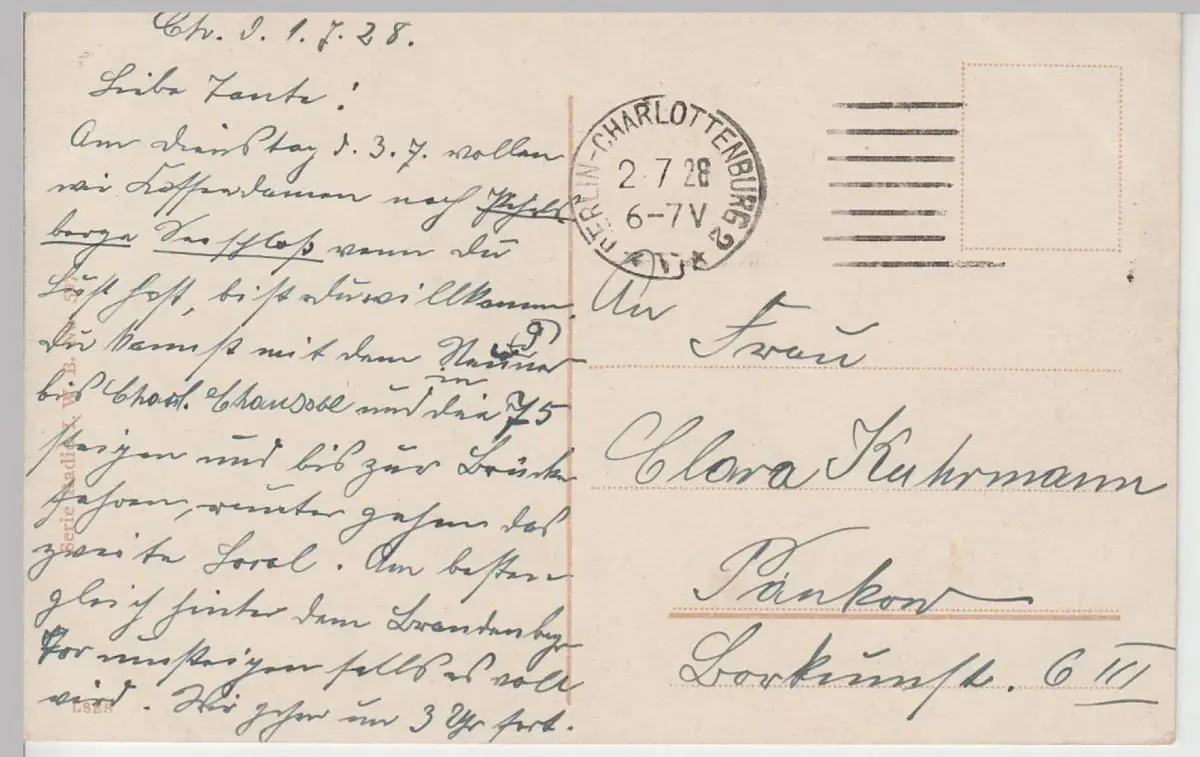 Ch. d. 1.7.28.
Liebe Tante!
Am Dienstag d. 3.7. wollen
wir Kaffeedamen nach Pichels
berge Seeschloß wenn du
Lust hast, bist du willkomm.
Du kannst mit dem Neuner (9)
bis Charl. Chaussee und in die 75
steigen und bis zur Brücke
fahren, runter gehen das
zweite Local. Am besten
gleich hinter dem Brandenbgr
Tor umsteigen falls es voll
wird. Wir gehen um 3 Uhr fort.
BERLIN-CHARLOTTENBURG 2
2.7.28
6-7V
An
Frau
Clara Kuhrmann
Pankow
Borkumst. 6 III
Serie W. B.